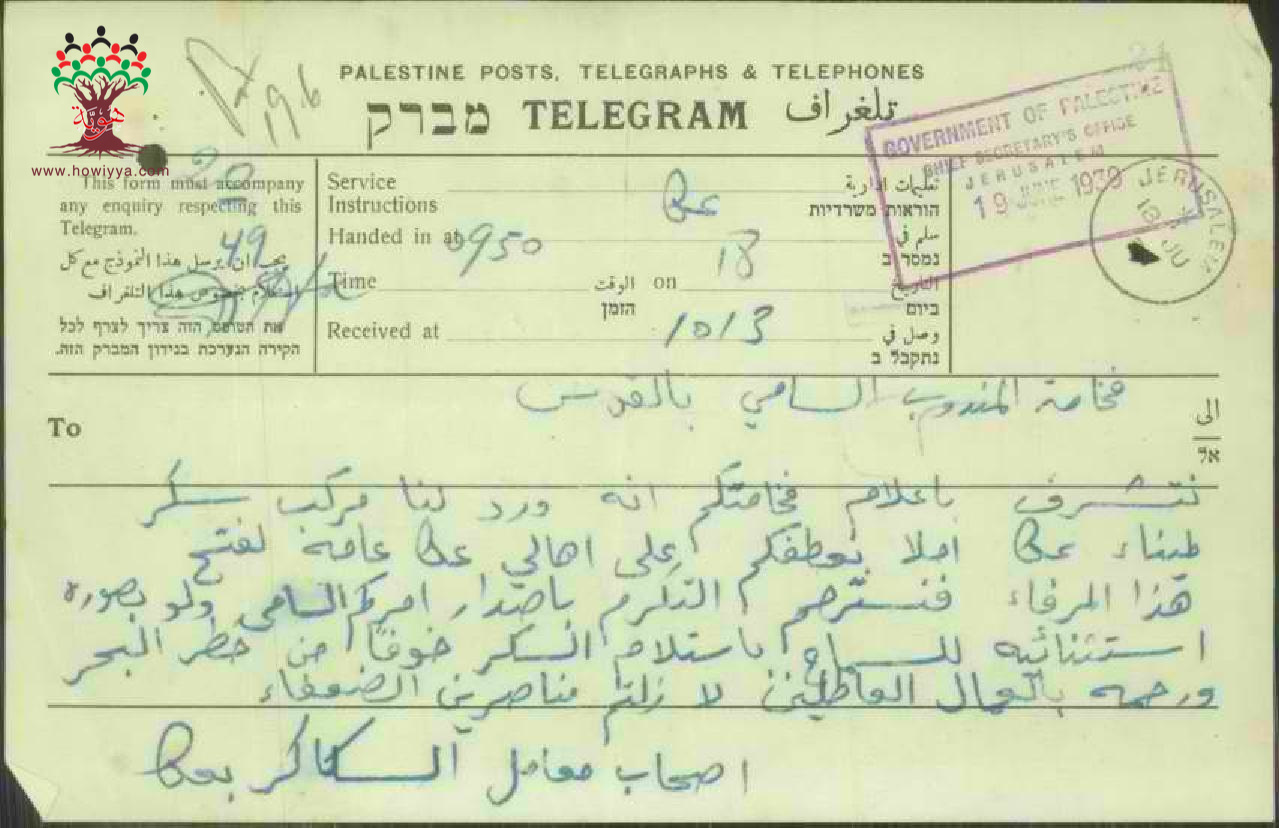 PALESTINE POSTS, TELEGRAPHS & TELEPHONES
מברק TELEGRAM تلغراف
هوية
www.howiyya.com
196
GOVERNMENT OF PALESTINE
CHIEF SECRETARY'S OFFICE
JERUSALEM
19 JUNE 1939
JERUSALEM
18 JU
20
49
This form must accompany
any enquiry respecting this
Telegram.
يجب ان يرسل هذا النموذج مع كل
استعلام بخصوص هذا التلغراف
את הטופס הזה צריך לצרף לכל
חקירה הנערכת בנידון המברק הזה.
Service
Instructions
عكا
تعليمات ادارية
הוראות משרדיות
Handed in at 0950 18 سلم في
נמסר ב
Time الوقت on التاريخ
הזמן ביום
Received at 1013 وصل في
נתקבל ב
To
الى
אל
فخامة المندوب السامي بالقدس
نتشرف باعلام فخامتكم انه ورد لنا مركب سكر
لميناء عكا املا بعطفكم على اهالي عكا عامة لفتح
هذا المرفاء فنسترحم التكرم باصدار امركم السامي ولو بصوره
استثنائيه للسماح باستلام السكر خوفا من خطر البحر
ورحمه بالعمال العاطلين لا زلتم مناصرين الضعفاء
اصحاب معامل السكاكر بعكا